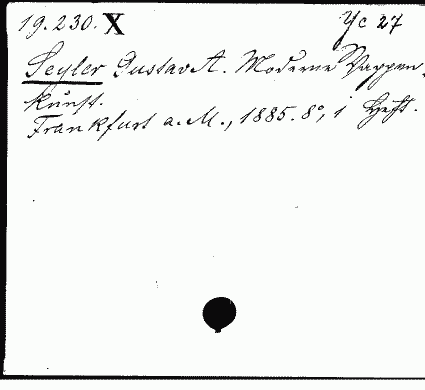 19.230. X Yc 27
Seyler Gustav A. Moderne Wappen-
kunst.
Frankfurt a. M., 1885. 8°, 1 Heft.